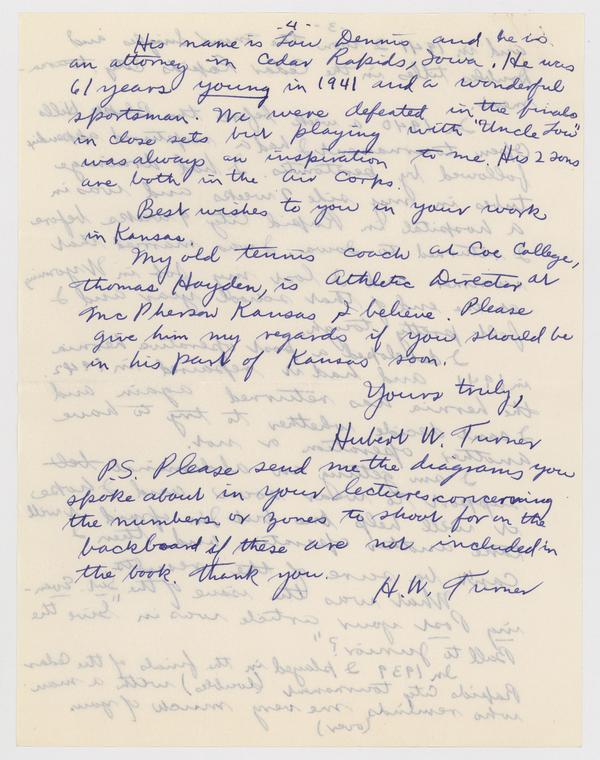 -4-
His name is Low Dennis and he is
an attorney in Cedar Rapids, Iowa. He was
61 years young in 1941 and a wonderful
sportsman. We were defeated in the finals
in close sets but playing with "Uncle Low"
was always an inspiration to me. His 2 sons
are both in the Air Corps.
Best wishes to you in your work
in Kansas.
My old tennis coach at Coe College,
Thomas Hayden, is Athletic Director at
McPherson Kansas I believe. Please
give him my regards if you should be
in his part of Kansas soon.
Yours truly,
Hubert W. Turner
P.S. Please send me the diagrams you
spoke about in your lectures concerning
the numbers or zones to shoot for on the
backboard if these are not included in
the book. Thank you.
H.W. Turner